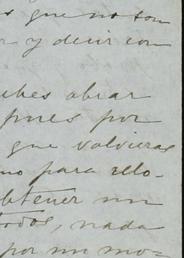 s que no son
r y decir con
ubes obrar
pues por
que volvieras
no para ello-
btener un
todos, nada
por un mo-